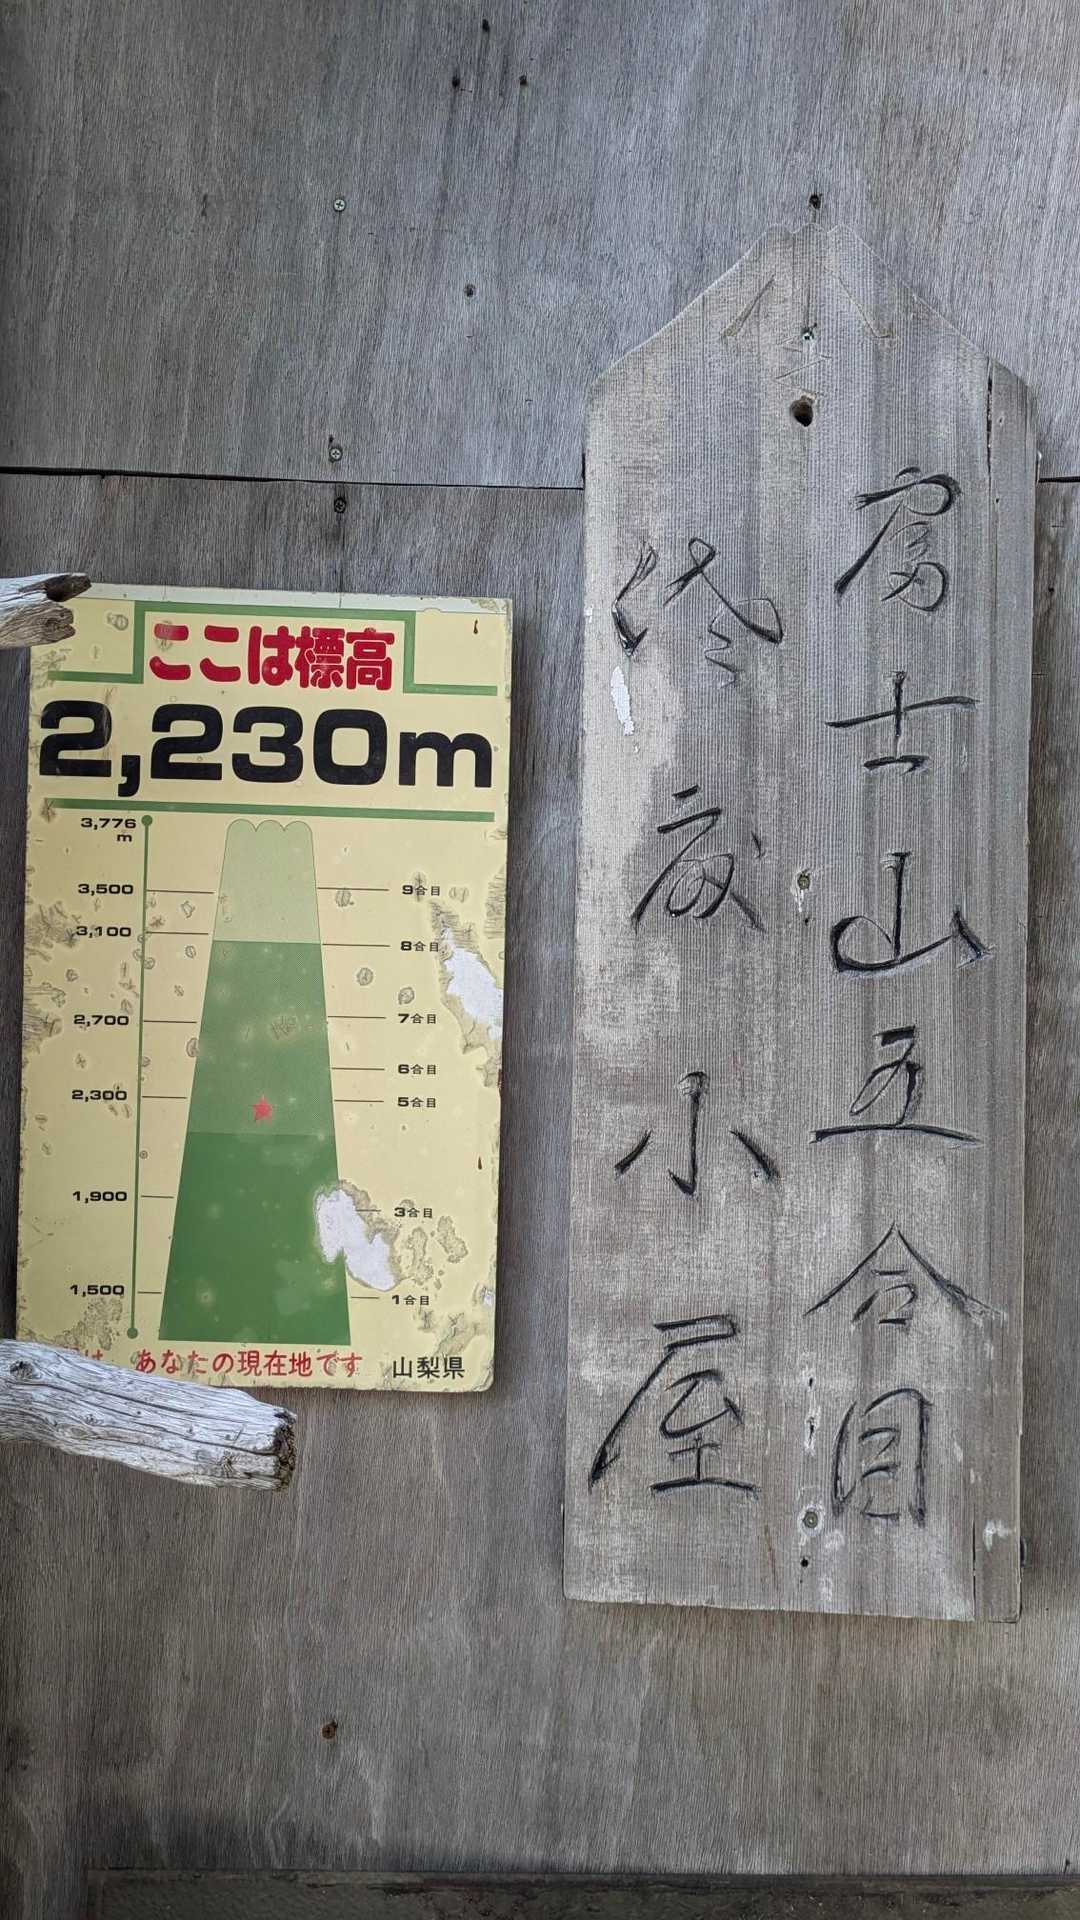 ここは標高
2,230m
3,776
m
3,500
9合目
3,100
8合目
2,700
7合目
6合目
2,300
5合目
1,900
3合目
1,500
1合目
は、あなたの現在地です
山梨県
富士山五合目
佐藤小屋